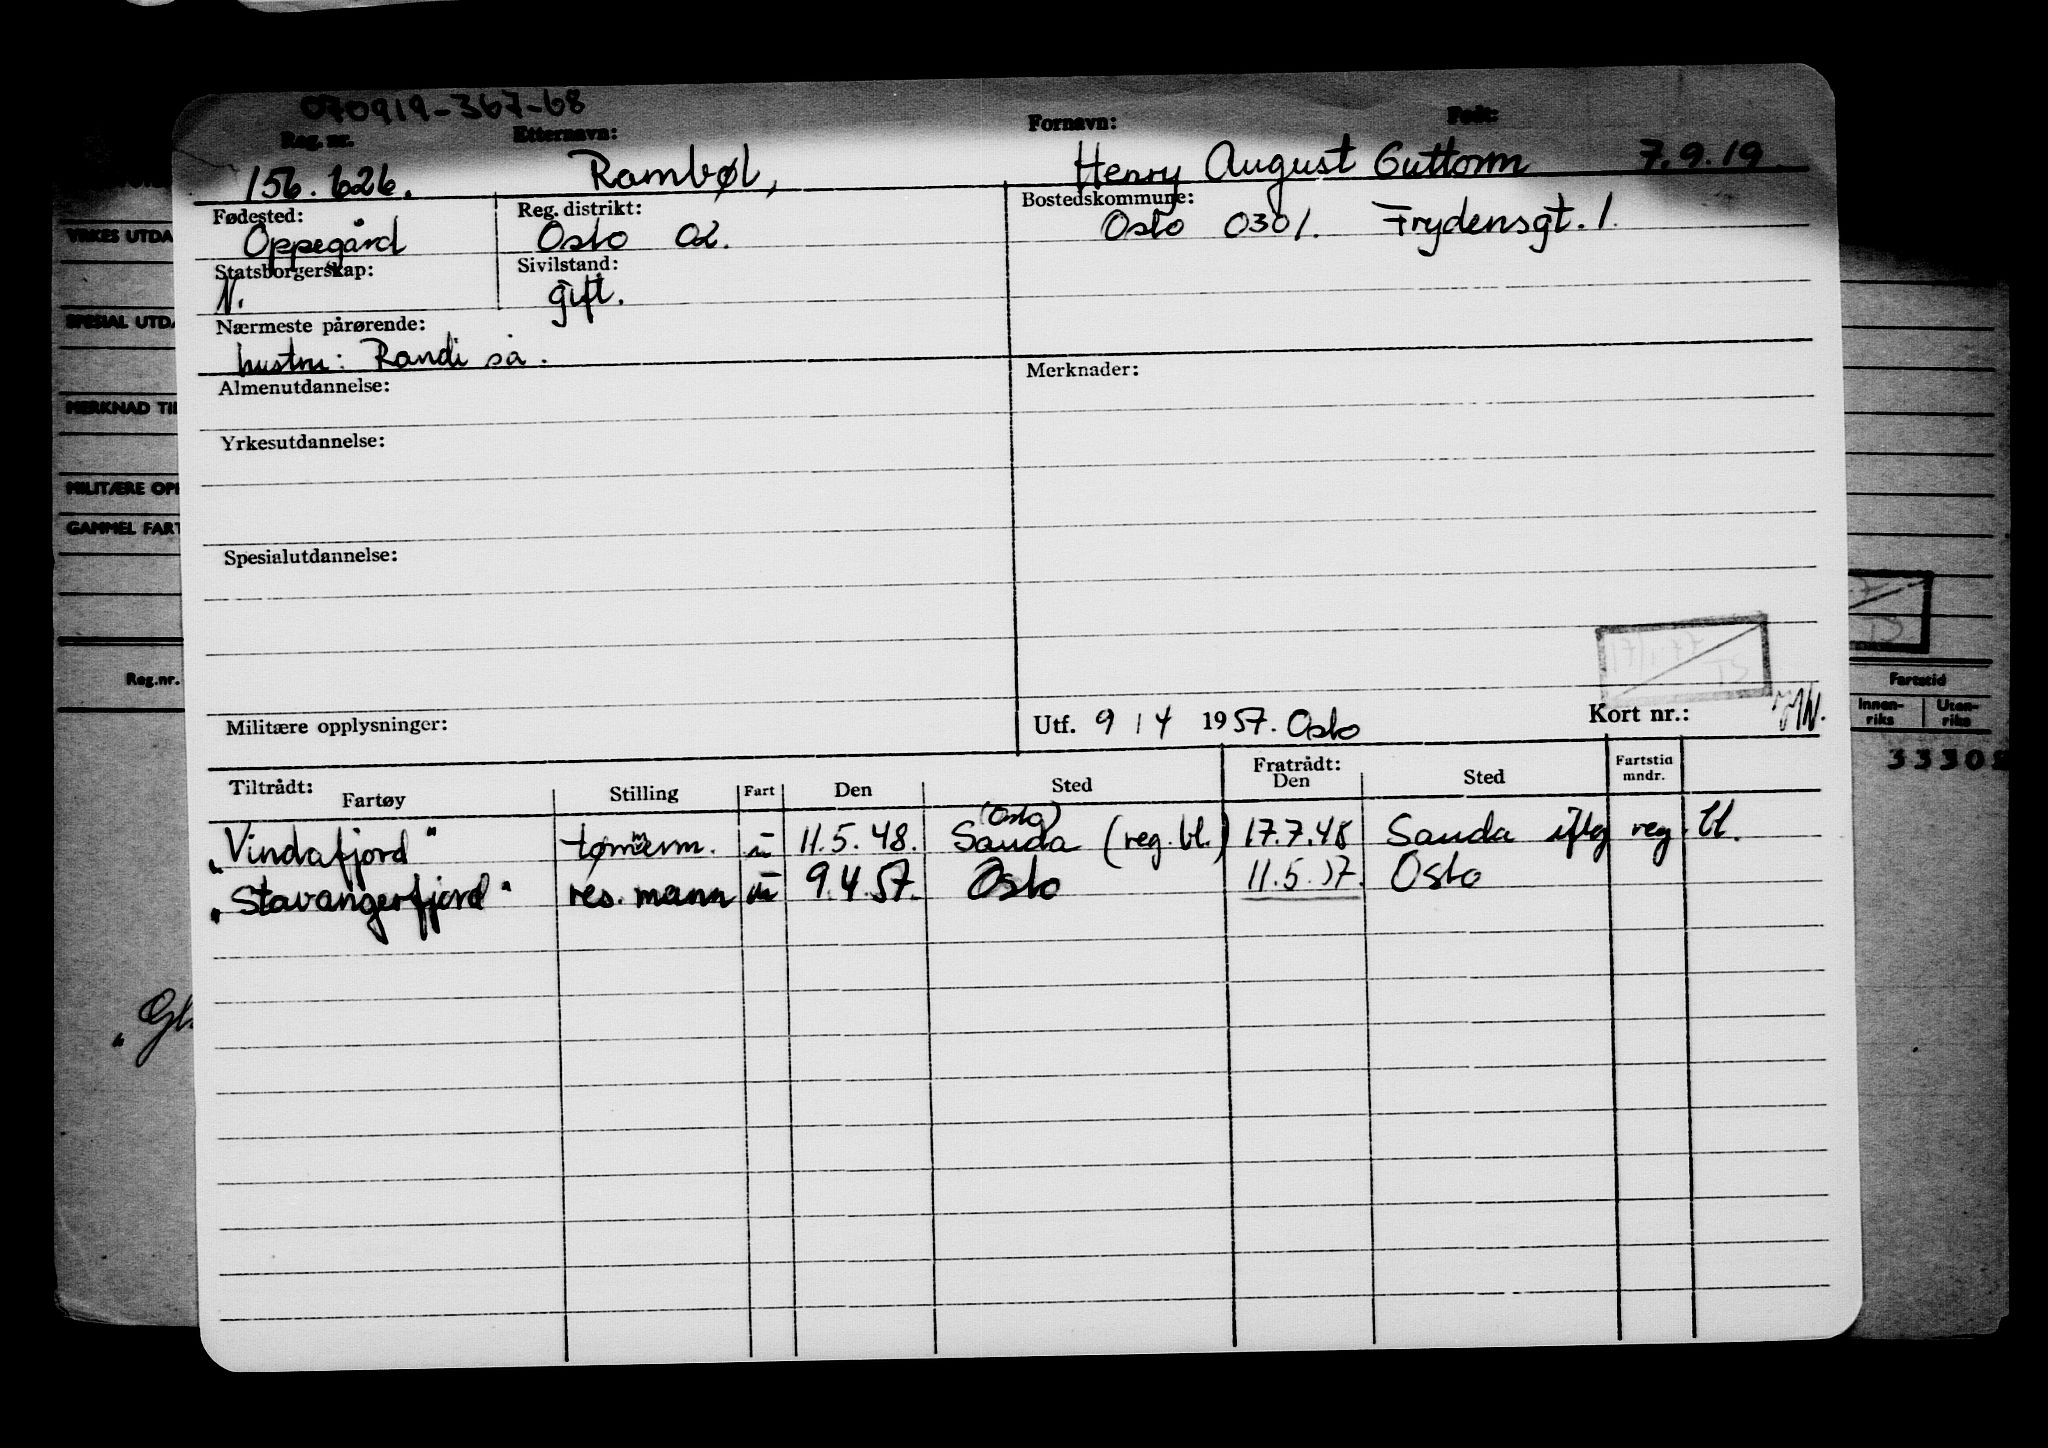 070919-367-68
Reg. nr. Etternavn: Fornavn: Født:
156.626. Rambøl, Henry August Guttorm 7.9.19.
Fødested: Reg. distrikt: Bostedskommune:
Oppegård Oslo 02. Oslo 0301. Frydensgt. 1.
Statsborgerskap: Sivilstand:
N. gift.
Nærmeste pårørende:
hustru: Randi sa.
Almenutdannelse: Merknader:
Yrkesutdannelse:
Spesialutdannelse:
Militære opplysninger: Utf. 9 / 4 1957. Oslo Kort nr.:
Tiltrådt: Fratrådt: Fartstid
Fartøy Stilling Fart Den Sted Den Sted mndr.
(Oslo)
"Vindafjord" tømmerm. u 11.5.48. Sauda (reg. bl.) 17.7.48 Sauda iflg reg. bl.
"Stavangerfjord" res. mann u 9.4.57. Oslo 11.5.57. Oslo
YRKES UTDA
SPESIAL UTDA
MERKNAD TIL
MILITÆRE OPP
GAMMEL FART
Reg.nr.
Fartstid
Innen-
riks
Uten-
riks
"Gl